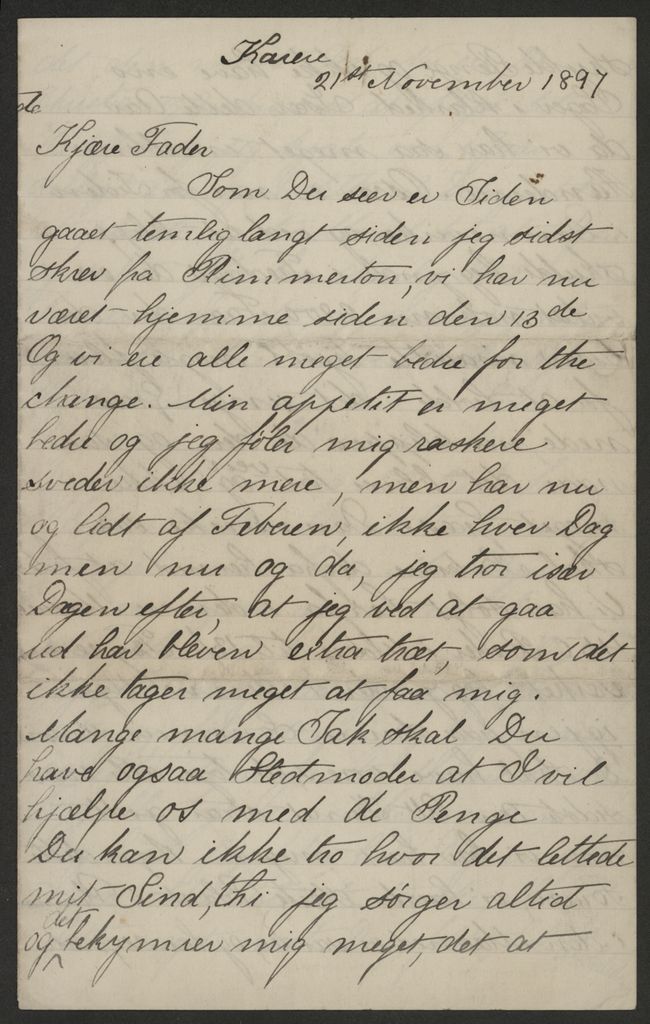 Karere
21st November 1897
de
Kjære Fader
Som Du seer er Tiden
gaaet temlig langt siden jeg sidst
skrev fra Plimmerton, vi har nu
været hjemme siden den 13de
Og vi ere alle meget bedre for the
change. Min appetit er meget
bedre og jeg føler mig raskere
sveder ikke mere, men har nu
og lidt af Feberen, ikke hver Dag
men nu og da, jeg tror især
Dagen efter, at jeg ved at gaa
ud har bleven extra træt, som det
ikke tager meget at faa mig.
Mange mange Tak skal Du
have ogsaa Stedmoder at I vil
hjælpe os med de Penge
Du kan ikke tro hvor det lettede
mit Sind, thi jeg sørger altid
og det bekymrer mig meget, det at